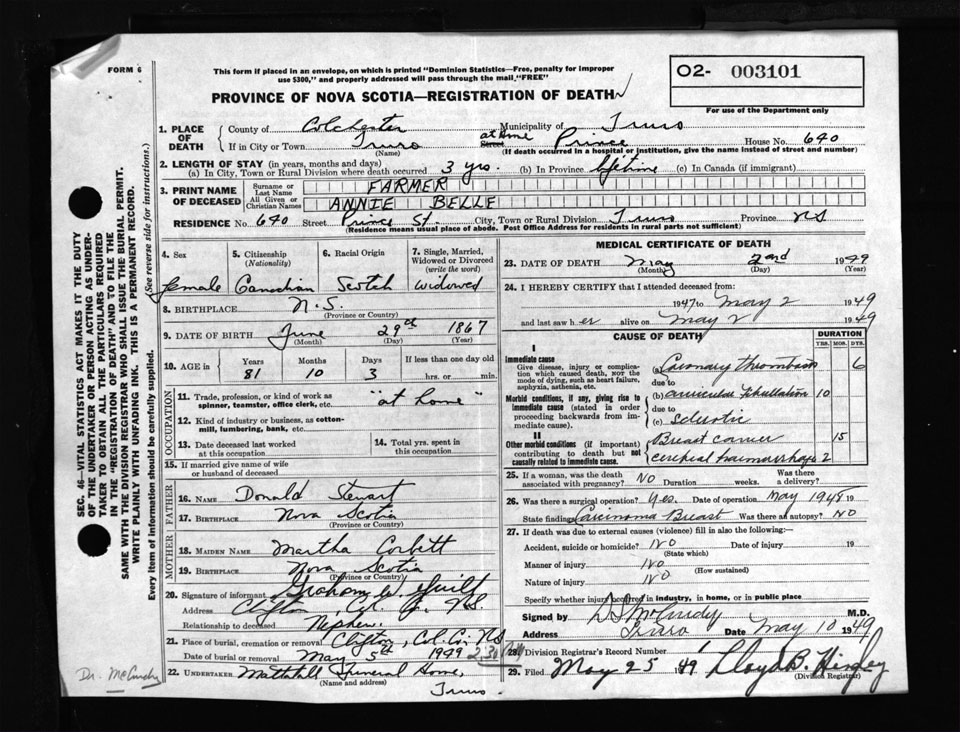 FORM 6
This form if placed in an envelope, on which is printed "Dominion Statistics—Free, penalty for improper
use $300," and properly addressed will pass through the mail "FREE"
O2- 003101
For use of the Department only
PROVINCE OF NOVA SCOTIA—REGISTRATION OF DEATH
1. PLACE OF DEATH
County of Colchester Municipality of Truro
If in City or Town Truro (Name) at home Street Prince House No. 640
(If death occurred in a hospital or institution, give the name instead of street and number)
2. LENGTH OF STAY (in years, months and days)
(a) In City, Town or Rural Division where death occurred 3 yrs. (b) In Province lifetime (c) In Canada (if immigrant)
3. PRINT NAME OF DECEASED
Surname or Last Name FARMER
All Given or Christian Names ANNIE BELLE
RESIDENCE No. 640 Street Prince St. City, Town or Rural Division Truro Province NS
(Residence means usual place of abode. Post Office Address for residents in rural parts not sufficient)
4. Sex female
5. Citizenship (Nationality) Canadian
6. Racial Origin Scotch
7. Single, Married, Widowed or Divorced (write the word) widowed
8. BIRTHPLACE N.S.
(Province or Country)
9. DATE OF BIRTH June 29th 1867
(Month) (Day) (Year)
10. AGE in Years 81 Months 10 Days 3 If less than one day old hrs. or min.
OCCUPATION
11. Trade, profession, or kind of work as spinner, teamster, office clerk, etc. "at home"
12. Kind of industry or business, as cotton-mill, lumbering, bank, etc.
13. Date deceased last worked at this occupation
14. Total yrs. spent in this occupation
15. If married give name of wife or husband of deceased
FATHER
16. NAME Donald Stewart
17. BIRTHPLACE Nova Scotia
(Province or Country)
MOTHER
18. MAIDEN NAME Martha Corbett
19. BIRTHPLACE Nova Scotia
(Province or Country)
20. Signature of informant Graham W.
Address Clifton, Col. Co. N.S.
Relationship to deceased Nephew.
21. Place of burial, cremation or removal Clifton, Col. Co. NS
Date of burial or removal May 5th 1949
22. UNDERTAKER Funeral Home,
(Name and address) Truro
MEDICAL CERTIFICATE OF DEATH
23. DATE OF DEATH May 2nd 1949
(Month) (Day) (Year)
24. I HEREBY CERTIFY that I attended deceased from:
1947 to May 2 1949
and last saw her alive on May 2 1949
CAUSE OF DEATH
DURATION
YRS. MOS. DYS.
I
Immediate cause
Give disease, injury or complication which caused death, not the mode of dying, such as heart failure, asphyxia, asthenia, etc.
(a) Coronary thrombosis 6
due to
Morbid conditions, if any, giving rise to immediate cause (stated in order proceeding backwards from immediate cause).
(b) auricular fibrillation 10
due to
(c) Sclerotic
II
Other morbid conditions (if important) contributing to death but not causally related to immediate cause.
Breast cancer 15
cerebral haemorrhage 2
25. If a woman, was the death associated with pregnancy? NO Duration weeks. Was there a delivery?
26. Was there a surgical operation? Yes. Date of operation May 1948 19
State findings Carcinoma Breast Was there an autopsy? NO
27. If death was due to external causes (violence) fill in also the following:—
Accident, suicide or homicide? NO Date of injury 19
(State which)
Manner of injury NO
(How sustained)
Nature of injury NO
Specify whether injury occurred in industry, in home, or in public place
Signed by D S McCurdy M.D.
Address Truro Date May 10 1949
28. Division Registrar's Record Number
29. Filed May 25 49 Lloyd B.
(Division Registrar)
SEC. 46—VITAL STATISTICS ACT MAKES IT THE DUTY
OF THE UNDERTAKER OR PERSON ACTING AS UNDER-
TAKER TO OBTAIN ALL THE PARTICULARS REQUIRED
IN THE "REGISTRATION OF DEATH" AND TO FILE THE
SAME WITH THE DIVISION REGISTRAR WHO SHALL ISSUE THE BURIAL PERMIT.
WRITE PLAINLY WITH UNFADING INK. THIS IS A PERMANENT RECORD.
Every item of information should be carefully supplied.
(See reverse side for instructions.)
Dr. McCurdy